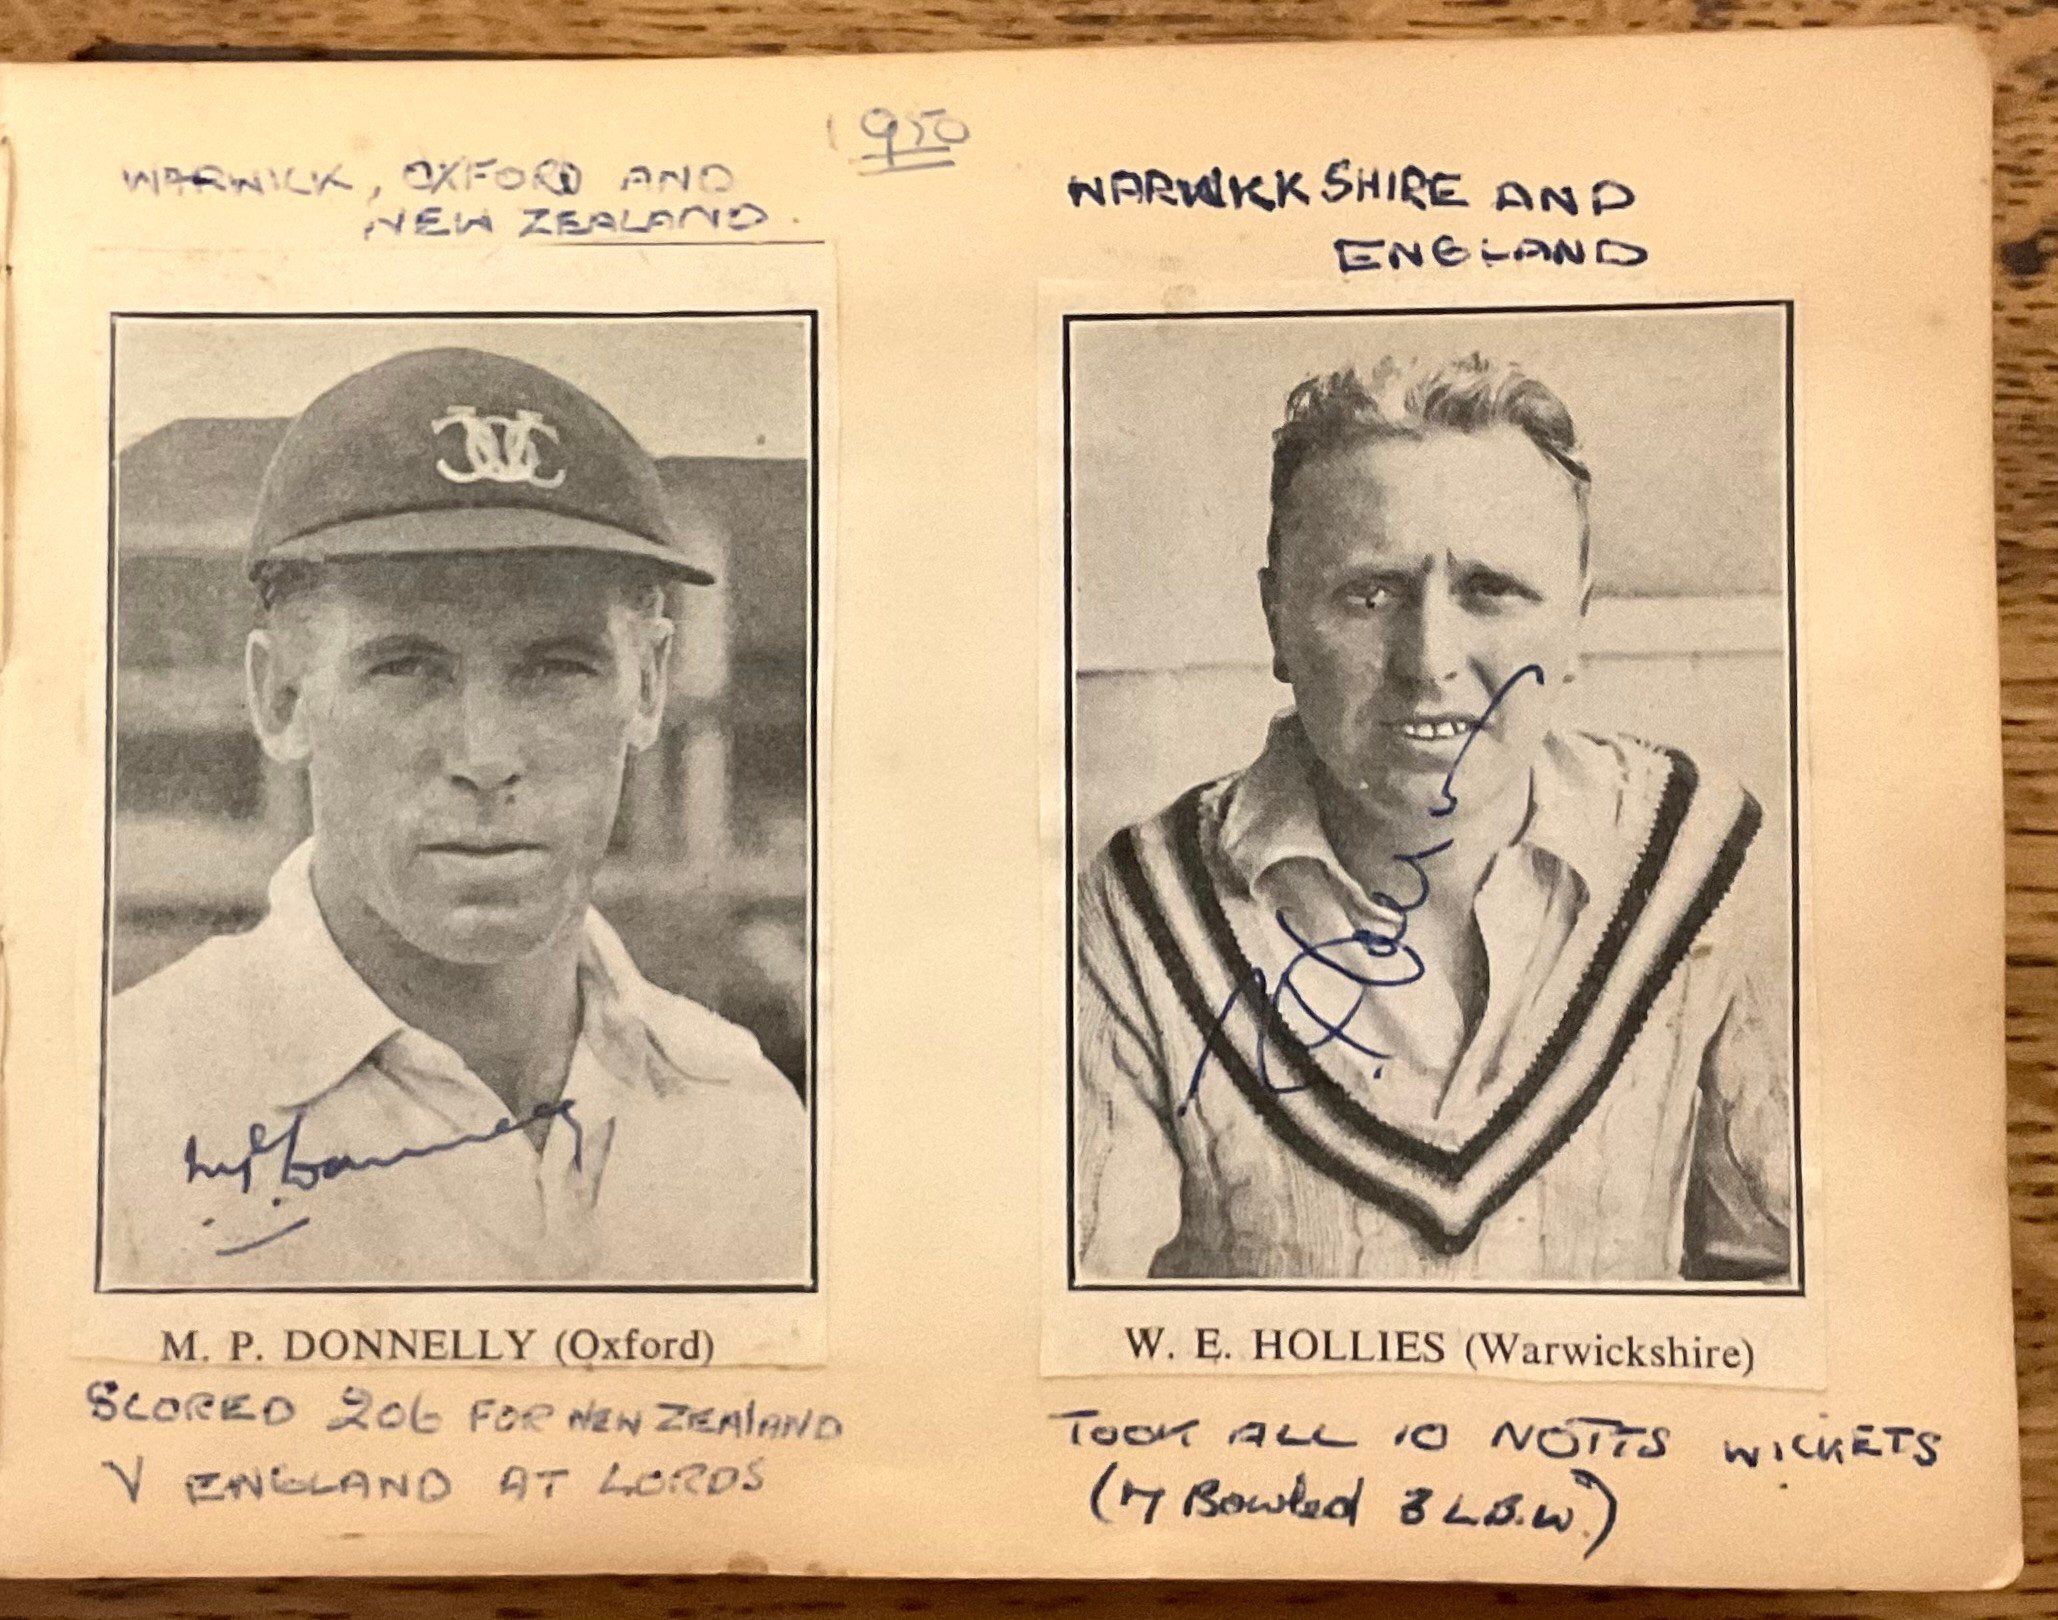 1950
WARWICK, OXFORD AND
NEW ZEALAND.
M P Donnelly
M. P. DONNELLY (Oxford)
SCORED 206 FOR NEW ZEALAND
V ENGLAND AT LORDS
WARWICKSHIRE AND
ENGLAND
W. E. HOLLIES (Warwickshire)
TOOK ALL 10 NOTTS WICKETS
(7 Bowled 3 L.B.W.)